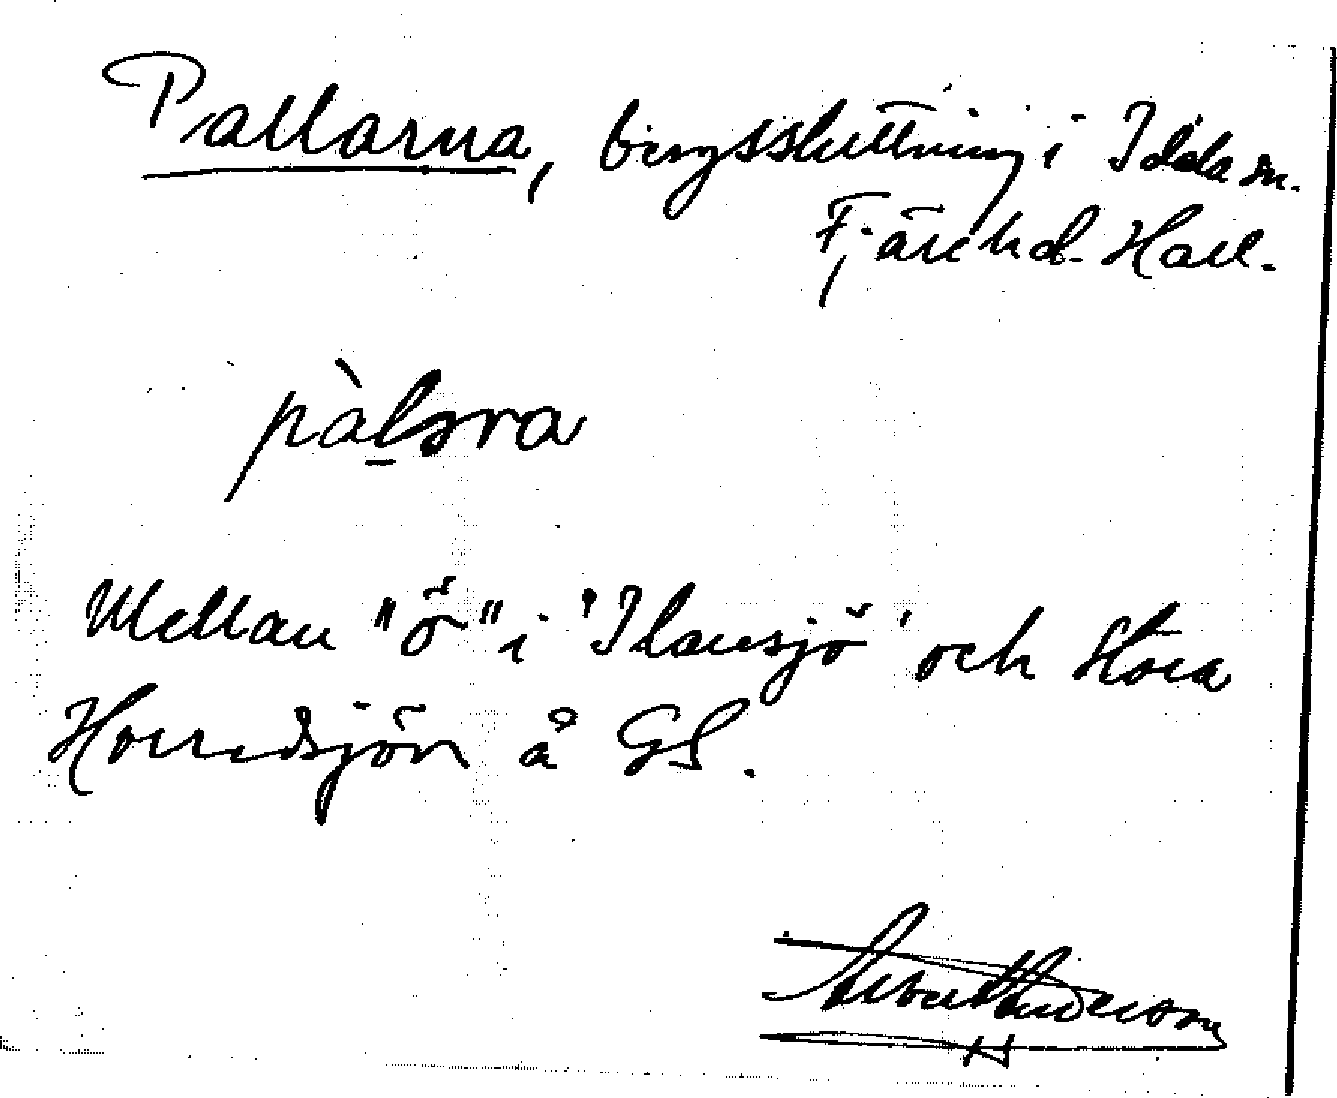 Pallarna, bergssluttning i Idala sn.
Fjäre hd. Hall.
pàl̲ərɑ
Mellan "ö" i 'Ilansjö' och Stora
Horredsjön å GS.
Albert Anderson